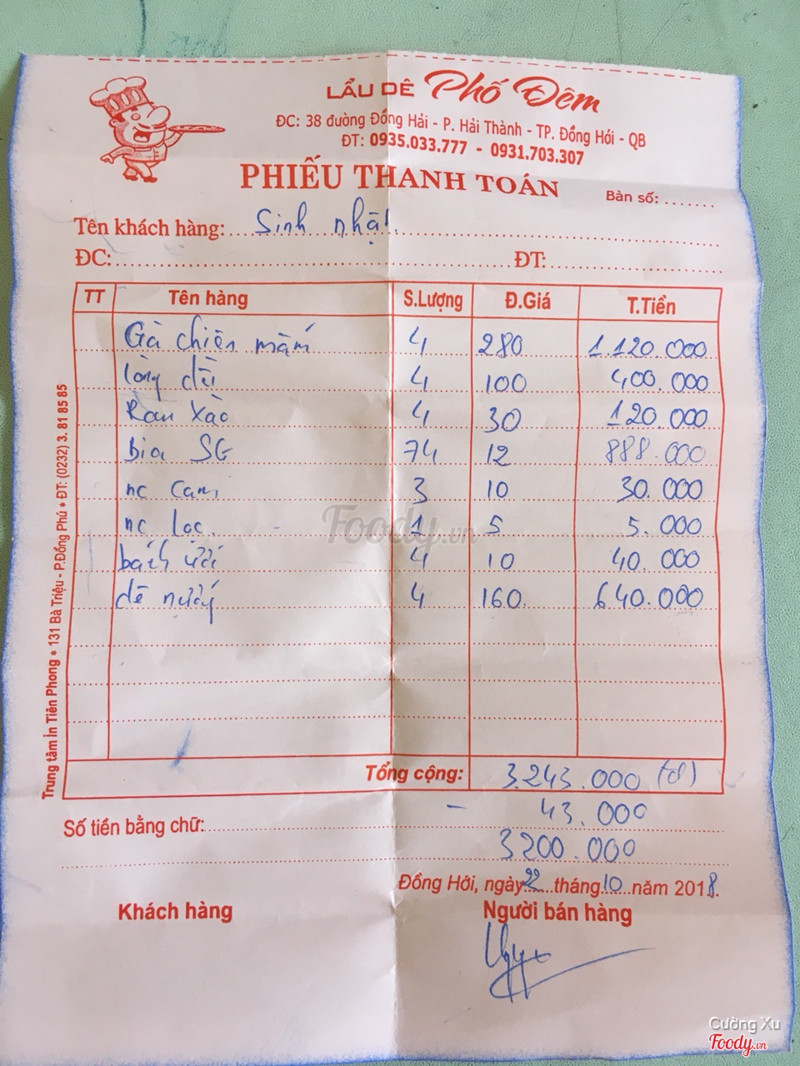 LẨU DÊ Phố Đêm
ĐC: 38 đường Đồng Hải - P. Hải Thành - TP. Đồng Hới - QB
ĐT: 0935.033.777 - 0931.703.307
PHIẾU THANH TOÁN
Bàn số:.......
Tên khách hàng: Sinh nhật
ĐC: ĐT:
TT Tên hàng S.Lượng Đ.Giá T.Tiền
Gà chiên mắm 4 280 1.120.000
lòng dồi 4 100 400.000
Rau xào 4 30 120.000
Bia SG 74 12 888.000
nc cam 3 10 30.000
nc lọc 1 5 5.000
bánh ướt 4 10 40.000
dê nướng 4 160 640.000
Tổng cộng: 3.243.000 (đ)
- 43.000
Số tiền bằng chữ:
3200.000
Đồng Hới, ngày 22 tháng 10 năm 2018.
Khách hàng Người bán hàng
Trung tâm in Tiên Phong • 131 Bà Triệu - P.Đồng Phú • ĐT: (0232) 3. 81 85 85
Foody.vn
Cường Xu
Foody.vn